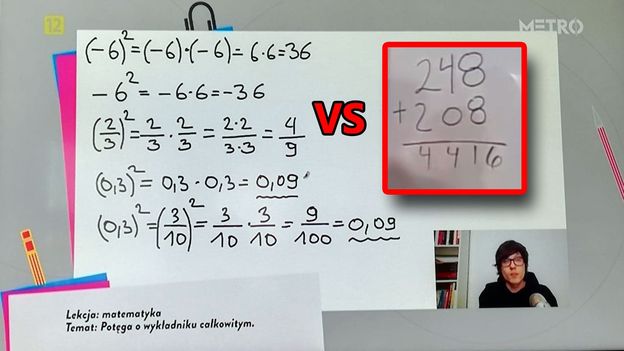 12
METRO
(-6)² = (-6)·(-6) = 6·6 = 36
-6² = -6·6 = -36
(2/3)² = 2/3 · 2/3 = 2·2/3·3 = 4/9
(0,3)² = 0,3 · 0,3 = 0,09
(0,3)² = (3/10)² = 3/10 · 3/10 = 9/100 = 0,09
VS
248
+208
4416
Lekcja: matematyka
Temat: Potęga o wykładniku całkowitym.